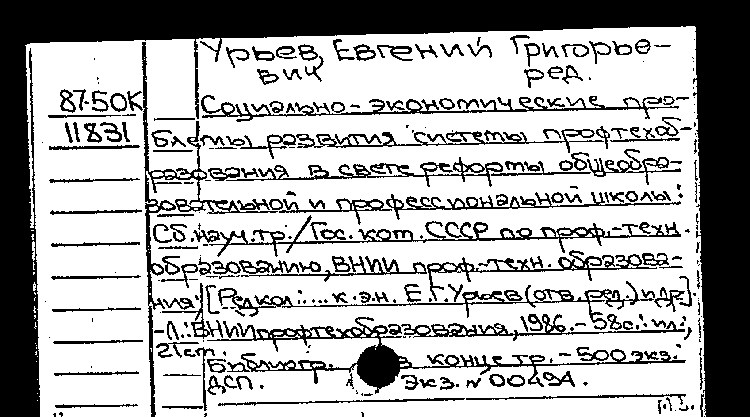 Урьев, Евгений Григорье-
вич ред.
87-50К Социально-экономические про-
11831 блемы развития системы профтехоб-
разования в свете реформы общеобра-
зовательной и профессиональной школы:
Сб. науч. тр. / Гос. ком. СССР по проф.-техн.
образованию, ВНИИ проф.-техн. образова-
ния; [Редкол.: ... к.э.н. Е.Г. Урьев (отв. ред.) и др.].
-Л.: ВНИИпрофтехобразования, 1986. - 58с.: ил.;
21см.
Библиогр. в конце тр. - 500 экз.:
ДСП. Экз. № 00494.